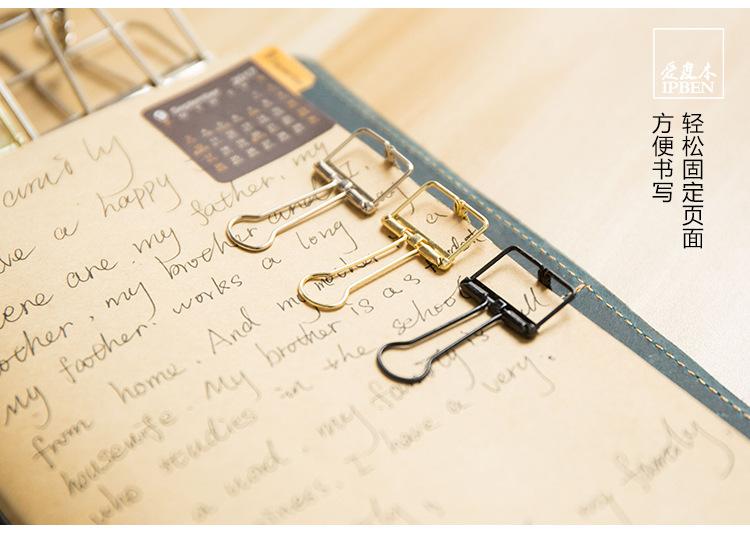 IPBEN
轻松固定页面
方便书写
2017
amily
ve a happy
ere are. my father, my
other, my brother and I.
my father. works a long
from home. And my mother
housewife. My brother is a student
who studies in the school
a word. my family is well
iness. I have a very.
my family